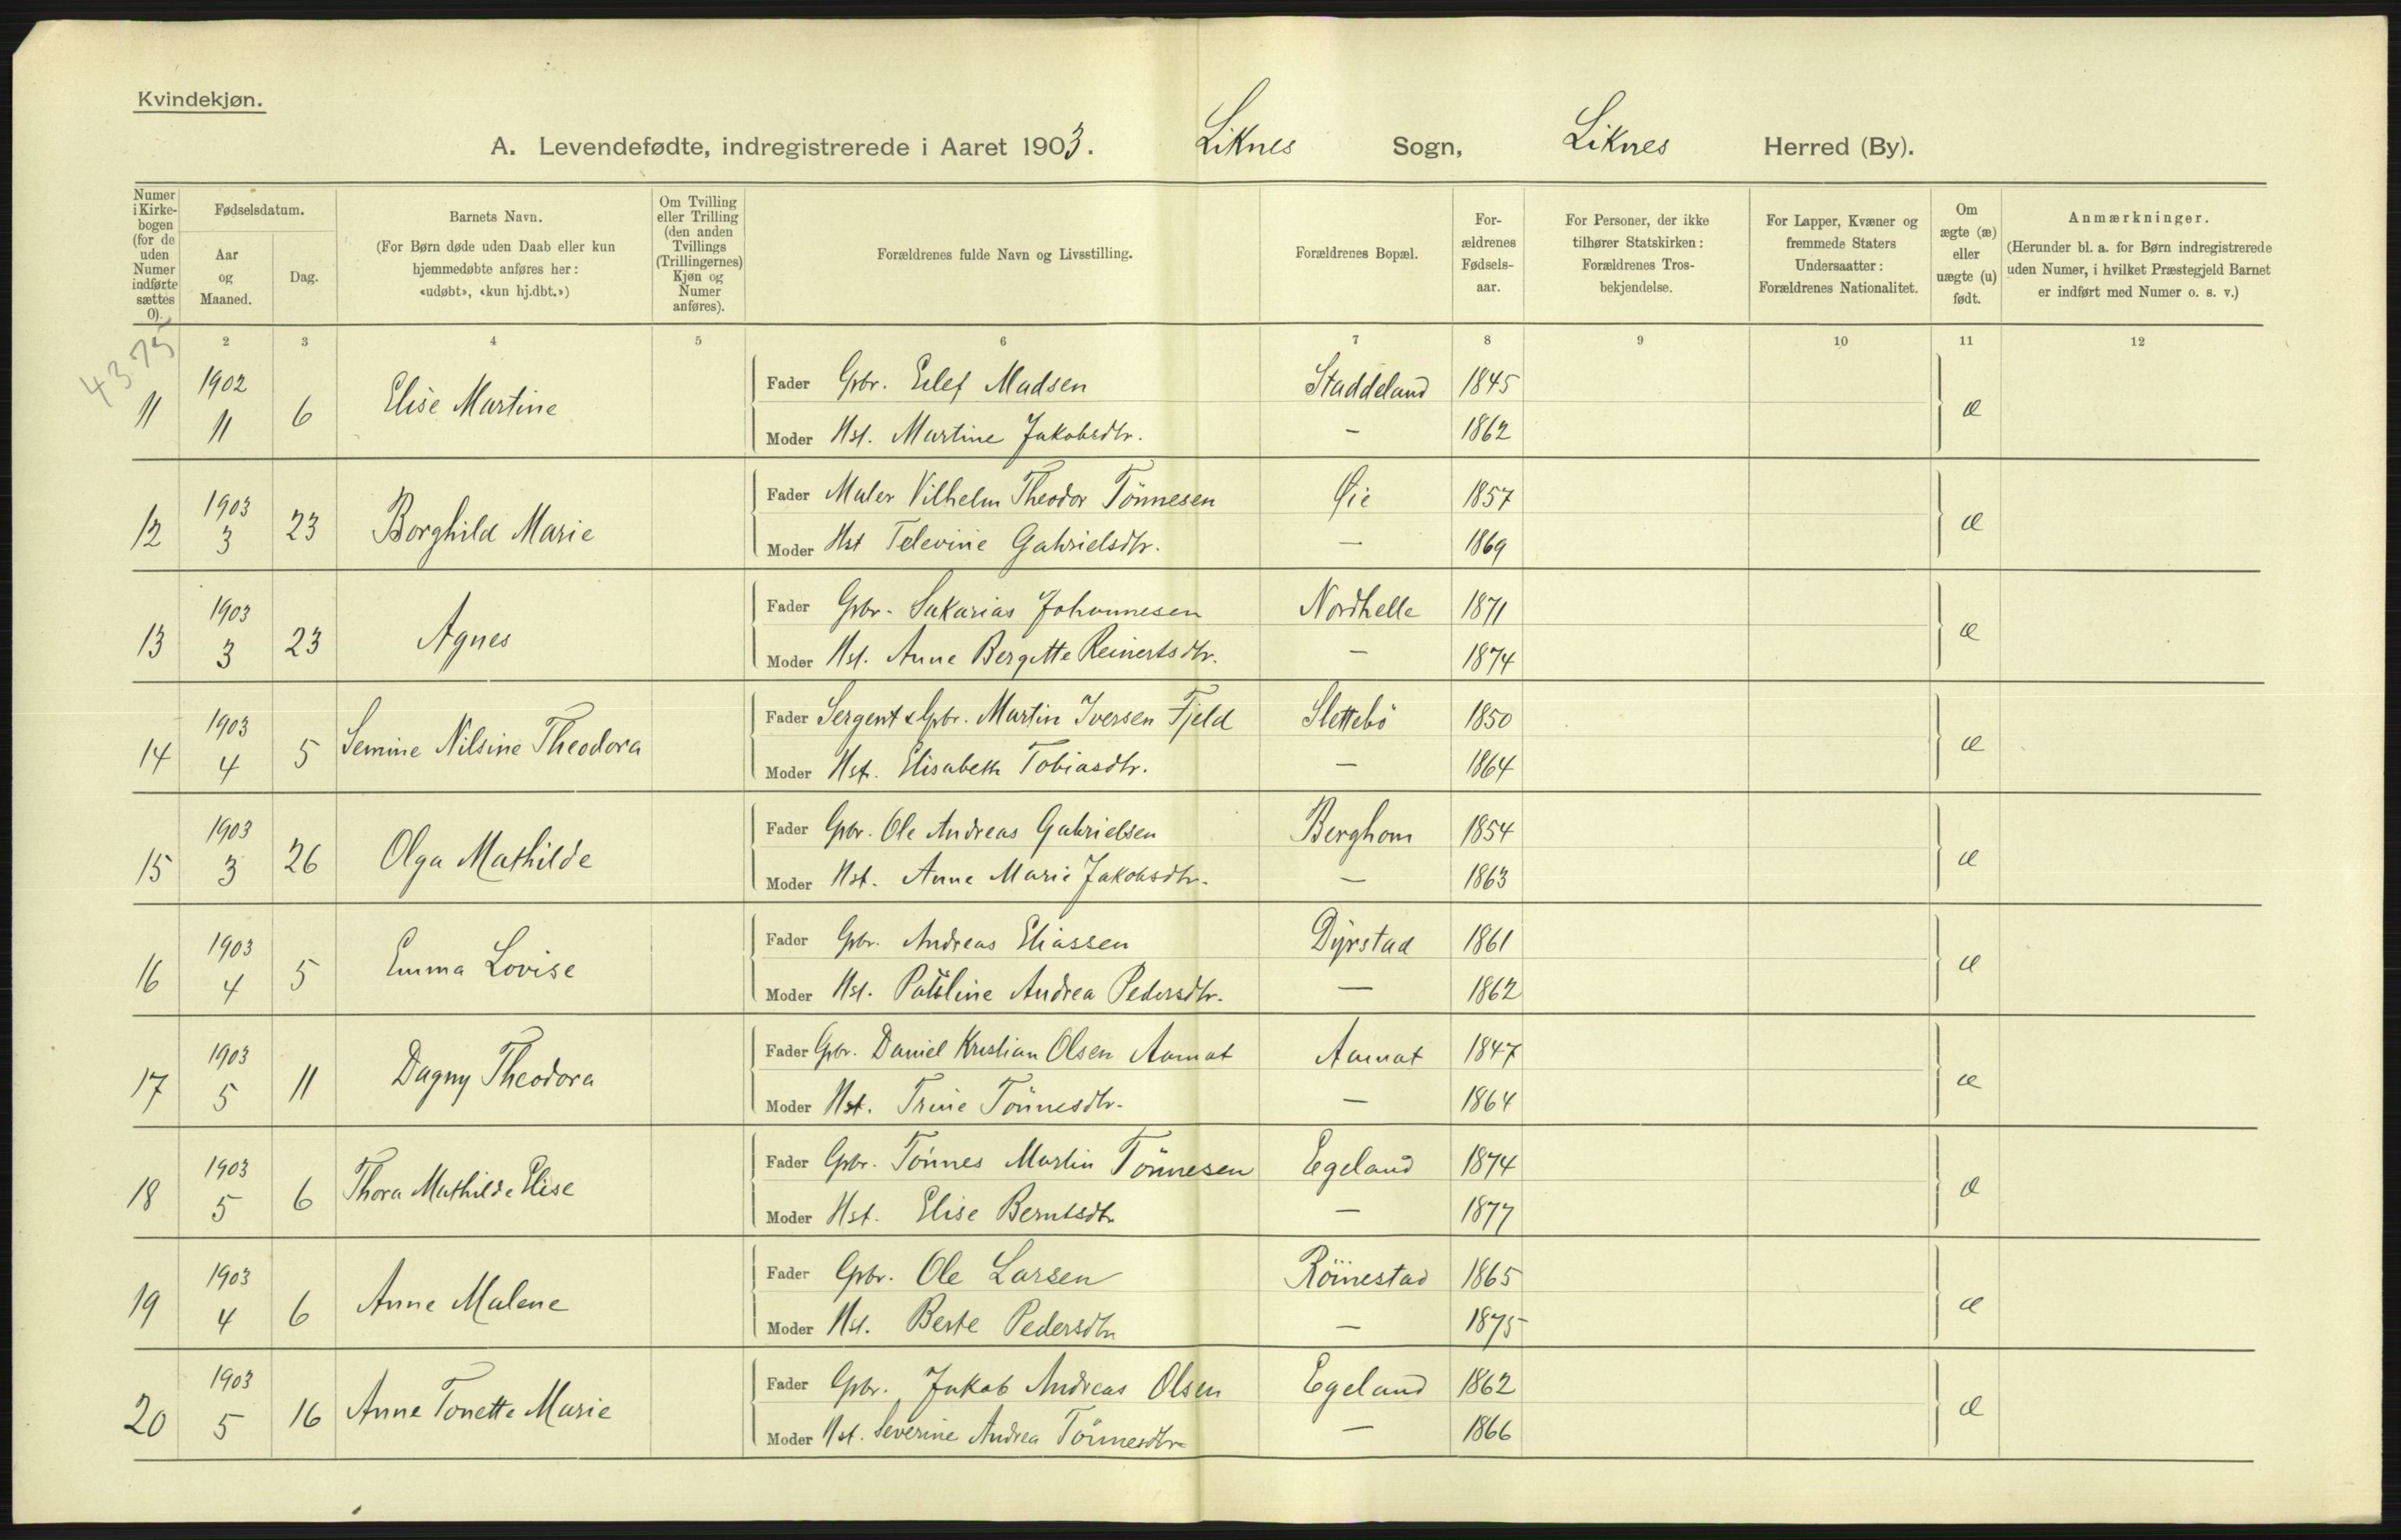 Kvindekjøn.
A. Levendefødte, indregistrerede i Aaret 1903. Liknes Sogn, Liknes Herred (By).
Numer i Kirkebogen (for de uden Numer indførte sættes 0).
Fødselsdatum.
Aar og Maaned.
Dag.
Barnets Navn.
(For Børn døde uden Daab eller kun
hjemmedøbte anføres her:
«udøbt», «kun hj.dbt.»)
Om Tvilling
eller Trilling
(den anden
Tvillings
(Trillingernes)
Kjøn og
Numer
anføres).
Forældrenes fulde Navn og Livsstilling.
Forældrenes Bopæl.
For-
ældrenes
Fødsels-
aar.
For Personer, der ikke
tilhører Statskirken:
Forældrenes Tros-
bekjendelse.
For Lapper, Kvæner og
fremmede Staters
Undersaatter:
Forældrenes Nationalitet.
Om
ægte (æ)
eller
uægte (u)
født.
Anmærkninger.
(Herunder bl. a. for Børn indregistrerede
uden Numer, i hvilket Præstegjeld Barnet
er indført med Numer o. s. v.)
2 3 4 5 6 7 8 9 10 11 12
43.75
11 1902 11 6 Elise Martine
Fader Gbr. Eilef Madsen Staddeland 1845 æ
Moder Hst. Martine Jakobsdtr. — 1862
12 1903 3 23 Borghild Marie
Fader Maler Vilhelm Theodor Tönnesen Øie 1857 æ
Moder Hst Televine Gabrielsdtr. — 1869
13 1903 3 23 Agnes
Fader Gbr. Sakarias Johannesen Nordhelle 1871 æ
Moder Hst. Anne Bergitte Reinertsdtr. — 1874
14 1903 4 5 Semine Nilsine Theodora
Fader Sergent & Gbr. Martin Iversen Fjeld Slettebö 1850 æ
Moder Hst. Elisabeth Tobiasdtr. — 1864
15 1903 3 26 Olga Mathilde
Fader Gbr. Ole Andreas Gabrielsen Berghom 1854 æ
Moder Hst. Anne Marie Jakobsdtr. — 1863
16 1903 4 5 Emma Lovise
Fader Gbr. Andreas Eliassen Dyrstad 1861 æ
Moder Hst. Pauline Andrea Pedersdtr. — 1862
17 1903 5 11 Dagny Theodora
Fader Gbr. Daniel Kristian Olsen Aamot Aamot 1847 æ
Moder Hst. Trine Tönnesdtr. — 1864
18 1903 5 6 Thora Mathilde Elise
Fader Gbr. Tönnes Martin Tönnesen Egeland 1874 æ
Moder Hst. Elise Berntsdtr — 1877
19 1903 4 6 Anne Malene
Fader Gbr. Ole Larsen Röinestad 1865 æ
Moder Hst. Berte Pedersdtr — 1875
20 1903 5 16 Anne Tonette Marie
Fader Gbr. Jakob Andreas Olsen Egeland 1862 æ
Moder Hst. Severine Andrea Tönnesdtr — 1866